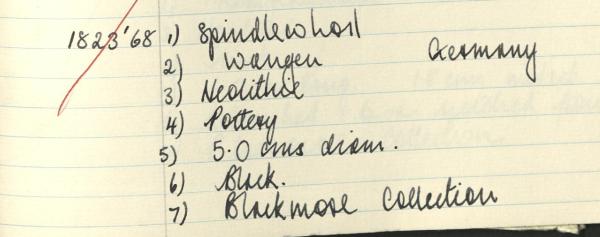 1823'68 1) Spindlewhorl
2) Wangen Germany
3) Neolithic
4) Pottery
5) 5.0 cms diam.
6) Black.
7) Blackmore Collection